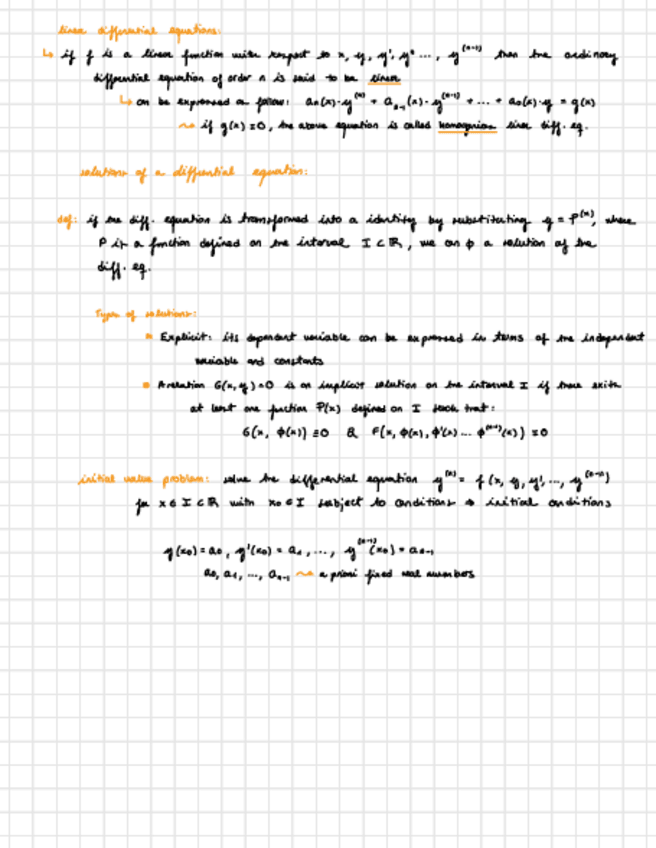 linear differential equations:
↳ if f is a linear function with respect to x, y, y', y'' ..., y⁽ⁿ⁻¹⁾ then the ordinary
differential equation of order n is said to be linear
↳ can be expressed as follow: aₙ(x)·y⁽ⁿ⁾ + aₙ₋₁(x)·y⁽ⁿ⁻¹⁾ + ... + a₀(x)·y = g(x)
⇝ if g(x) ≡0, the above equation is called linear diff. eq.
solutions of a differential equation:
def: if the diff. equation is transformed into a identity by substituting y = where
P is a function defined on the interval I ⊂ ℝ, we can ϕ a solution of the
diff. eq.
Types of solutions:
Explicit: its dependent variable can be expressed in terms of the independent
variable and constants
A relation G(x,y)=0 is an implicit solution on the interval I if there exits
at least one function P(x) defined on I such that:
G(x, ϕ(x)) ≡0 & F(x, ϕ(x), ϕ'(x) ... ϕ⁽ⁿ⁻¹⁾(x)) ≡0
initial value problem: solve the differential equation y⁽ⁿ⁾= f(x, y, y', ..., y⁽ⁿ⁻¹⁾)
for x ∈ I ⊂ ℝ with x₀ ∈ I subject to conditions → initial conditions
y(x₀) = a₀, y'(x₀) = a₁, ..., y⁽ⁿ⁻¹⁾(x₀) = aₙ₋₁
a₀, a₁, ..., aₙ₋₁ ⇝ a priori fixed real numbers